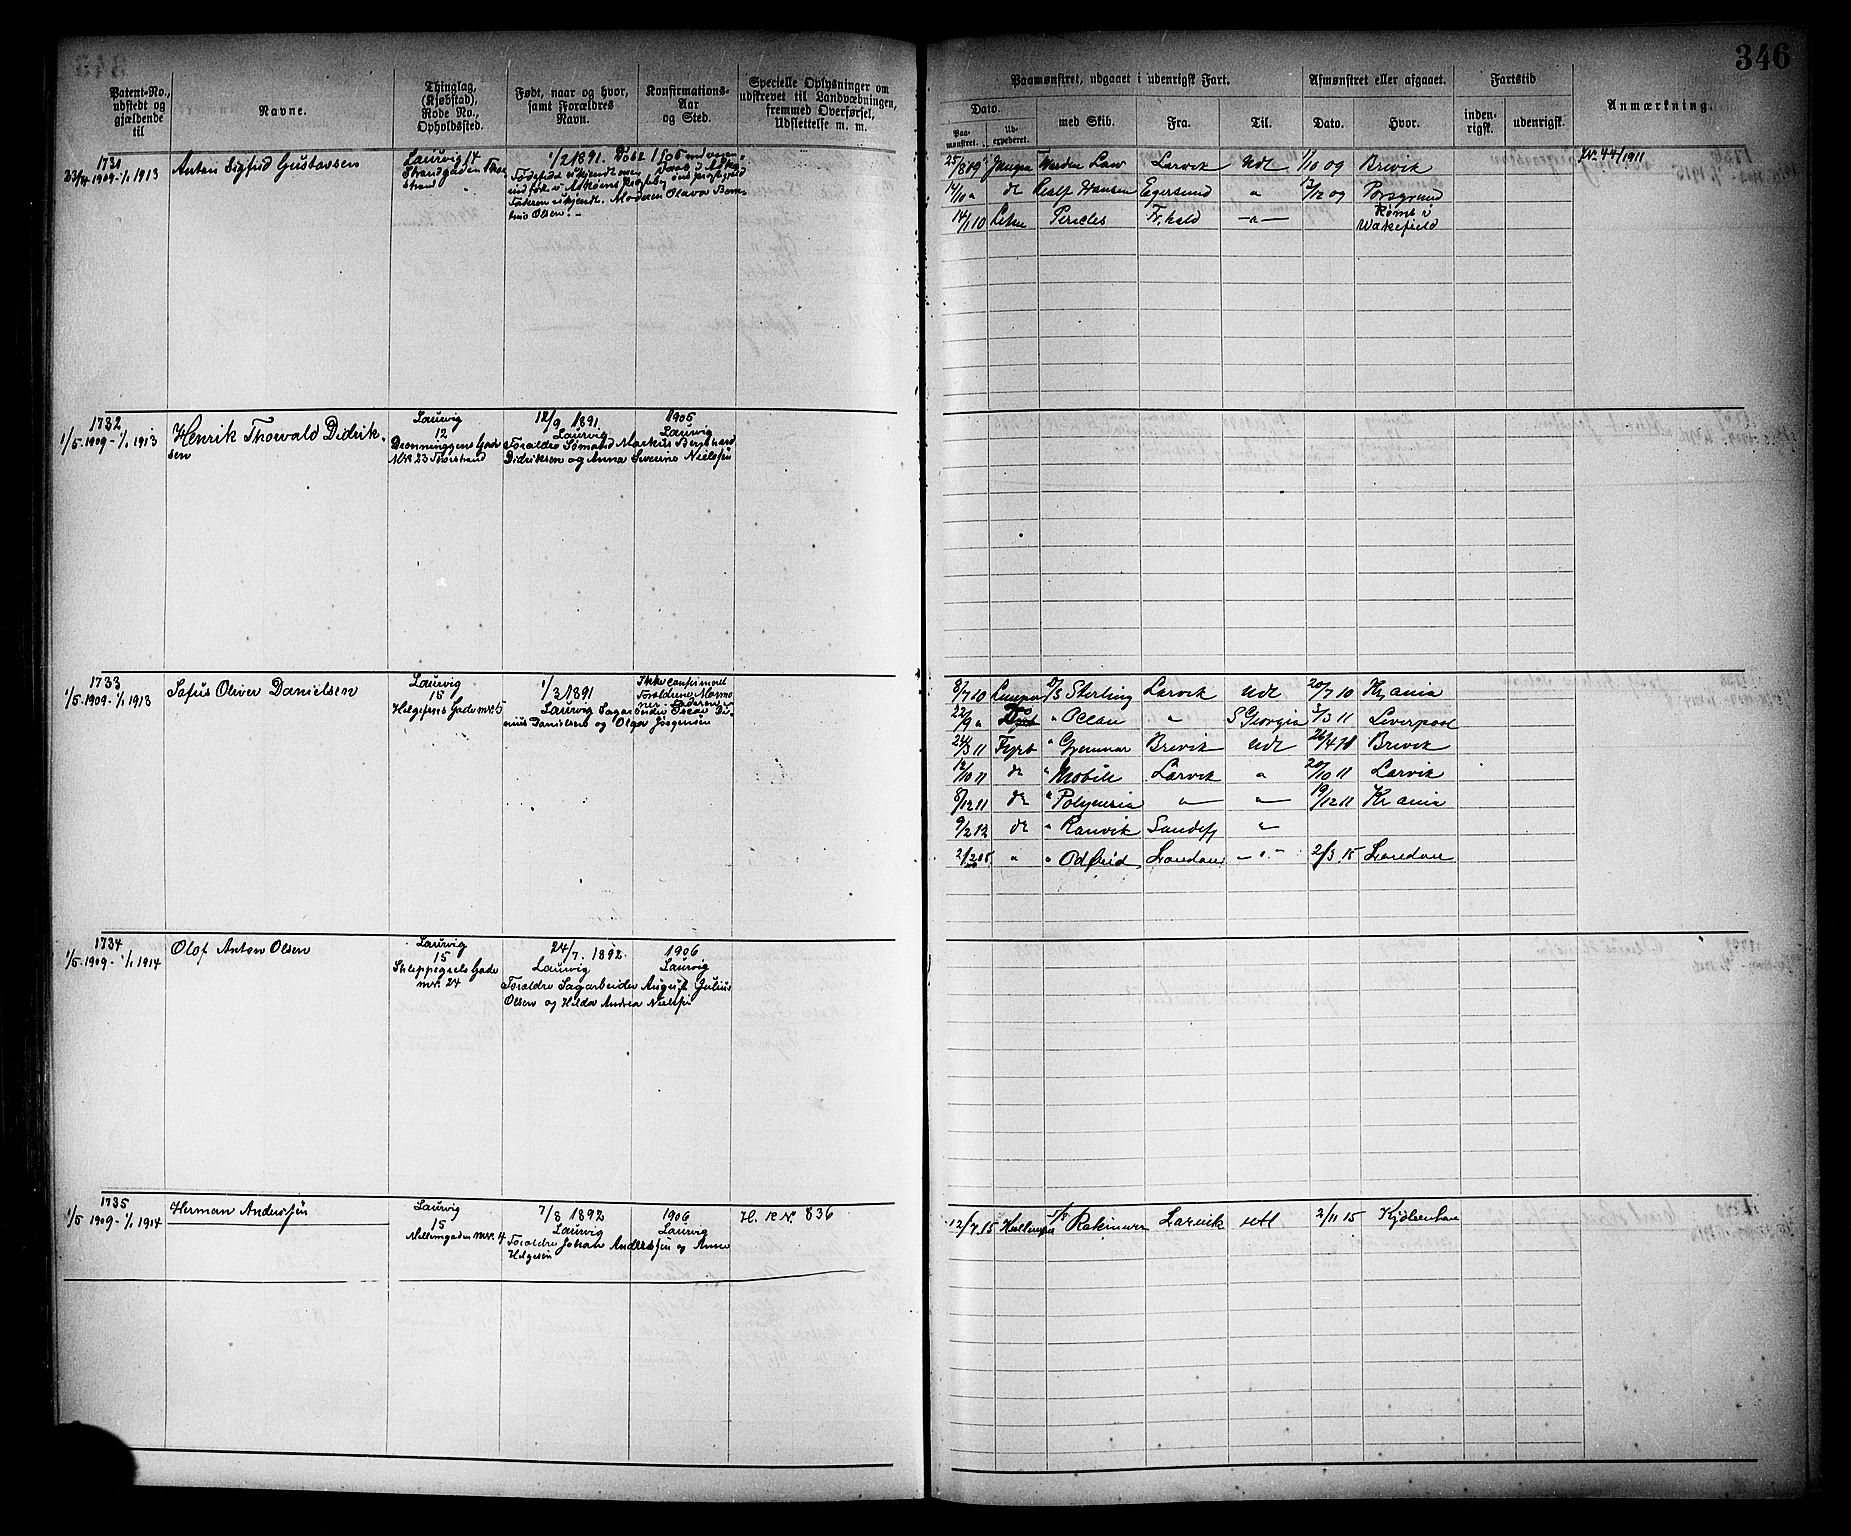 346
Patent-No., udstedt og gjældende til
Navne.
Thinglag, (Kjøbstad), Rode No., Opholdssted.
Født, naar og hvor, samt Forældres Navn.
Konfirmations-Aar og Sted.
Specielle Oplysninger om udskrevet til Landvæbningen, fremmed Overførsel, Udslettelse m. m.
Paamønstret, udgaaet i udenrigsk Fart.
Dato.
Paa-mønstret.
Ud-expederet.
med Skib.
Fra.
Til.
Afmønstret eller afgaaet.
Dato.
Hvor.
Fartstid
inden-rigsk.
udenrigsk.
Anmærkning.
1731
23/4 1909 - 1/1 1913
Anton Sigfred Gustavsen
Laurvig 14
Strandgaden Thor
strand
1/2 1891. Døbt 1905
Faderen Moderen Olava
Olsen
25/8 09 Jungm Warden Law Larvik Udl 1/10 09 Brevik
14/10 " do Realf Hansen Egersund " 13/12 09 Porsgrund
14/1 10 Letm Pericles Fr.hald - " - Rømt i
Wakefield
No. 44/1911
1732
1/5 1909 - 1/1 1913
Henrik Thorvald Didrik-
sen
Laurvig
12
Dronningens Gade
No. 23 Thorstrand
12/9 1891
Laurvig
1905
Laurvig
Forældre Sømand Markus Bernhard
Didriksen og Anna Severine Nielsen
1733
1/5 1909 - 1/1 1913
Sofus Oliver Danielsen
Laurvig
15
Helgesens Gade No. 5
1/3 1891
Laurvig
Ikke confirmeret
Forældrene Mormo
ner
Sagarbeider
Danielsens og Olga Jørgensen
8/7 10 Lemper D/S Sterling Larvik Udl 20/7 10 Kr.ania
22/9 " " Ocean " S Georgia 3/3 11 Liverpool
24/3 11 Fyrb " Gjennar Brevik Udl 26/4 11 Brevik
12/10 11 do " Mobile Larvik " 20/10 11 Larvik
8/12 11 do " Polynesia - " - - " - 19/12 11 Kr.ania
9/2 12 do " Ranvik Sandefj "
" " Odfrid London - " - 2/3 15 London
1734
1/5 1909 - 1/1 1914
Olof Anton Olsen
Laurvig
15
Schleppegrels Gade
No. 24
24/7. 1892
Laurvig
1906
Laurvig
Forældre Sagarbeider August Julius
Olsen og Hilda Andrea Nielsen
1735
1/5 1909 - 1/1 1914
Herman Andersen
Laurvig
15
Mellomgaden No. 4
7/8 1892
Laurvig
1906
Laurvig
Forældre Johan Andersen og Anne
Helgesen
H. R No. 836
12/7 15 S/S Larvik udl 2/11 15 Kjøbenhavn